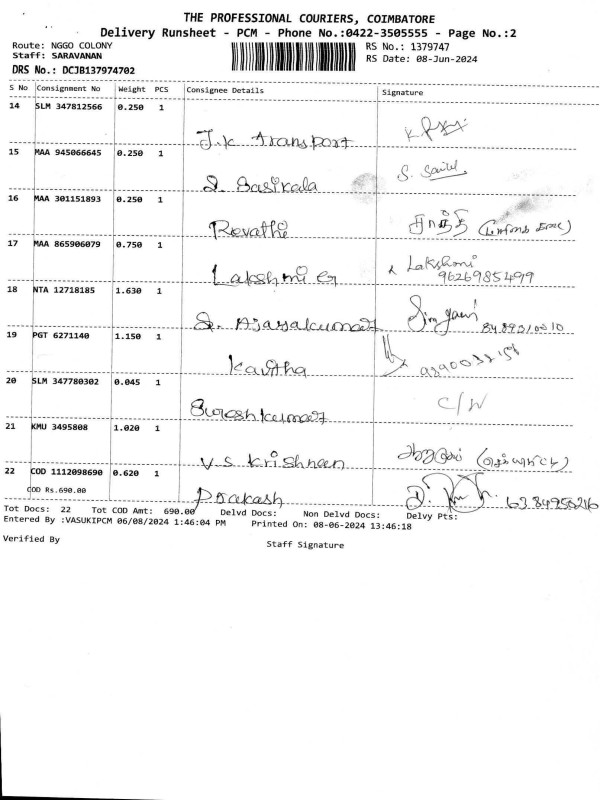 THE PROFESSIONAL COURIERS, COIMBATORE
Delivery Runsheet - PCM - Phone No.:0422-3505555 - Page No.:2
Route: NGGO COLONY
Staff: SARAVANAN
RS No.: 1379747
RS Date: 08-Jun-2024
DRS No.: DCJB137974702
S No Consignment No Weight PCS Consignee Details Signature
14 SLM 347812566 0.250 1
J.K Transport
15 MAA 945066645 0.250 1
S. Sasikala
16 MAA 301151893 0.250 1
Revathi
17 MAA 865906079 0.750 1
Lakshmi G Lakshmi
9626985499
18 NTA 12718185 1.630 1
S. Ajayakumar
19 PGT 6271140 1.150 1
Kavitha
20 SLM 347780302 0.045 1
Sureshkumar C/W
21 KMU 3495808 1.020 1
V.S. Krishnan
22 COD 1112098690 0.620 1
COD Rs.690.00
Prakash
Tot Docs: 22 Tot COD Amt: 690.00 Delvd Docs: Non Delvd Docs: Delvy Pts:
Entered By :VASUKIPCM 06/08/2024 1:46:04 PM Printed On: 08-06-2024 13:46:18
Verified By
Staff Signature